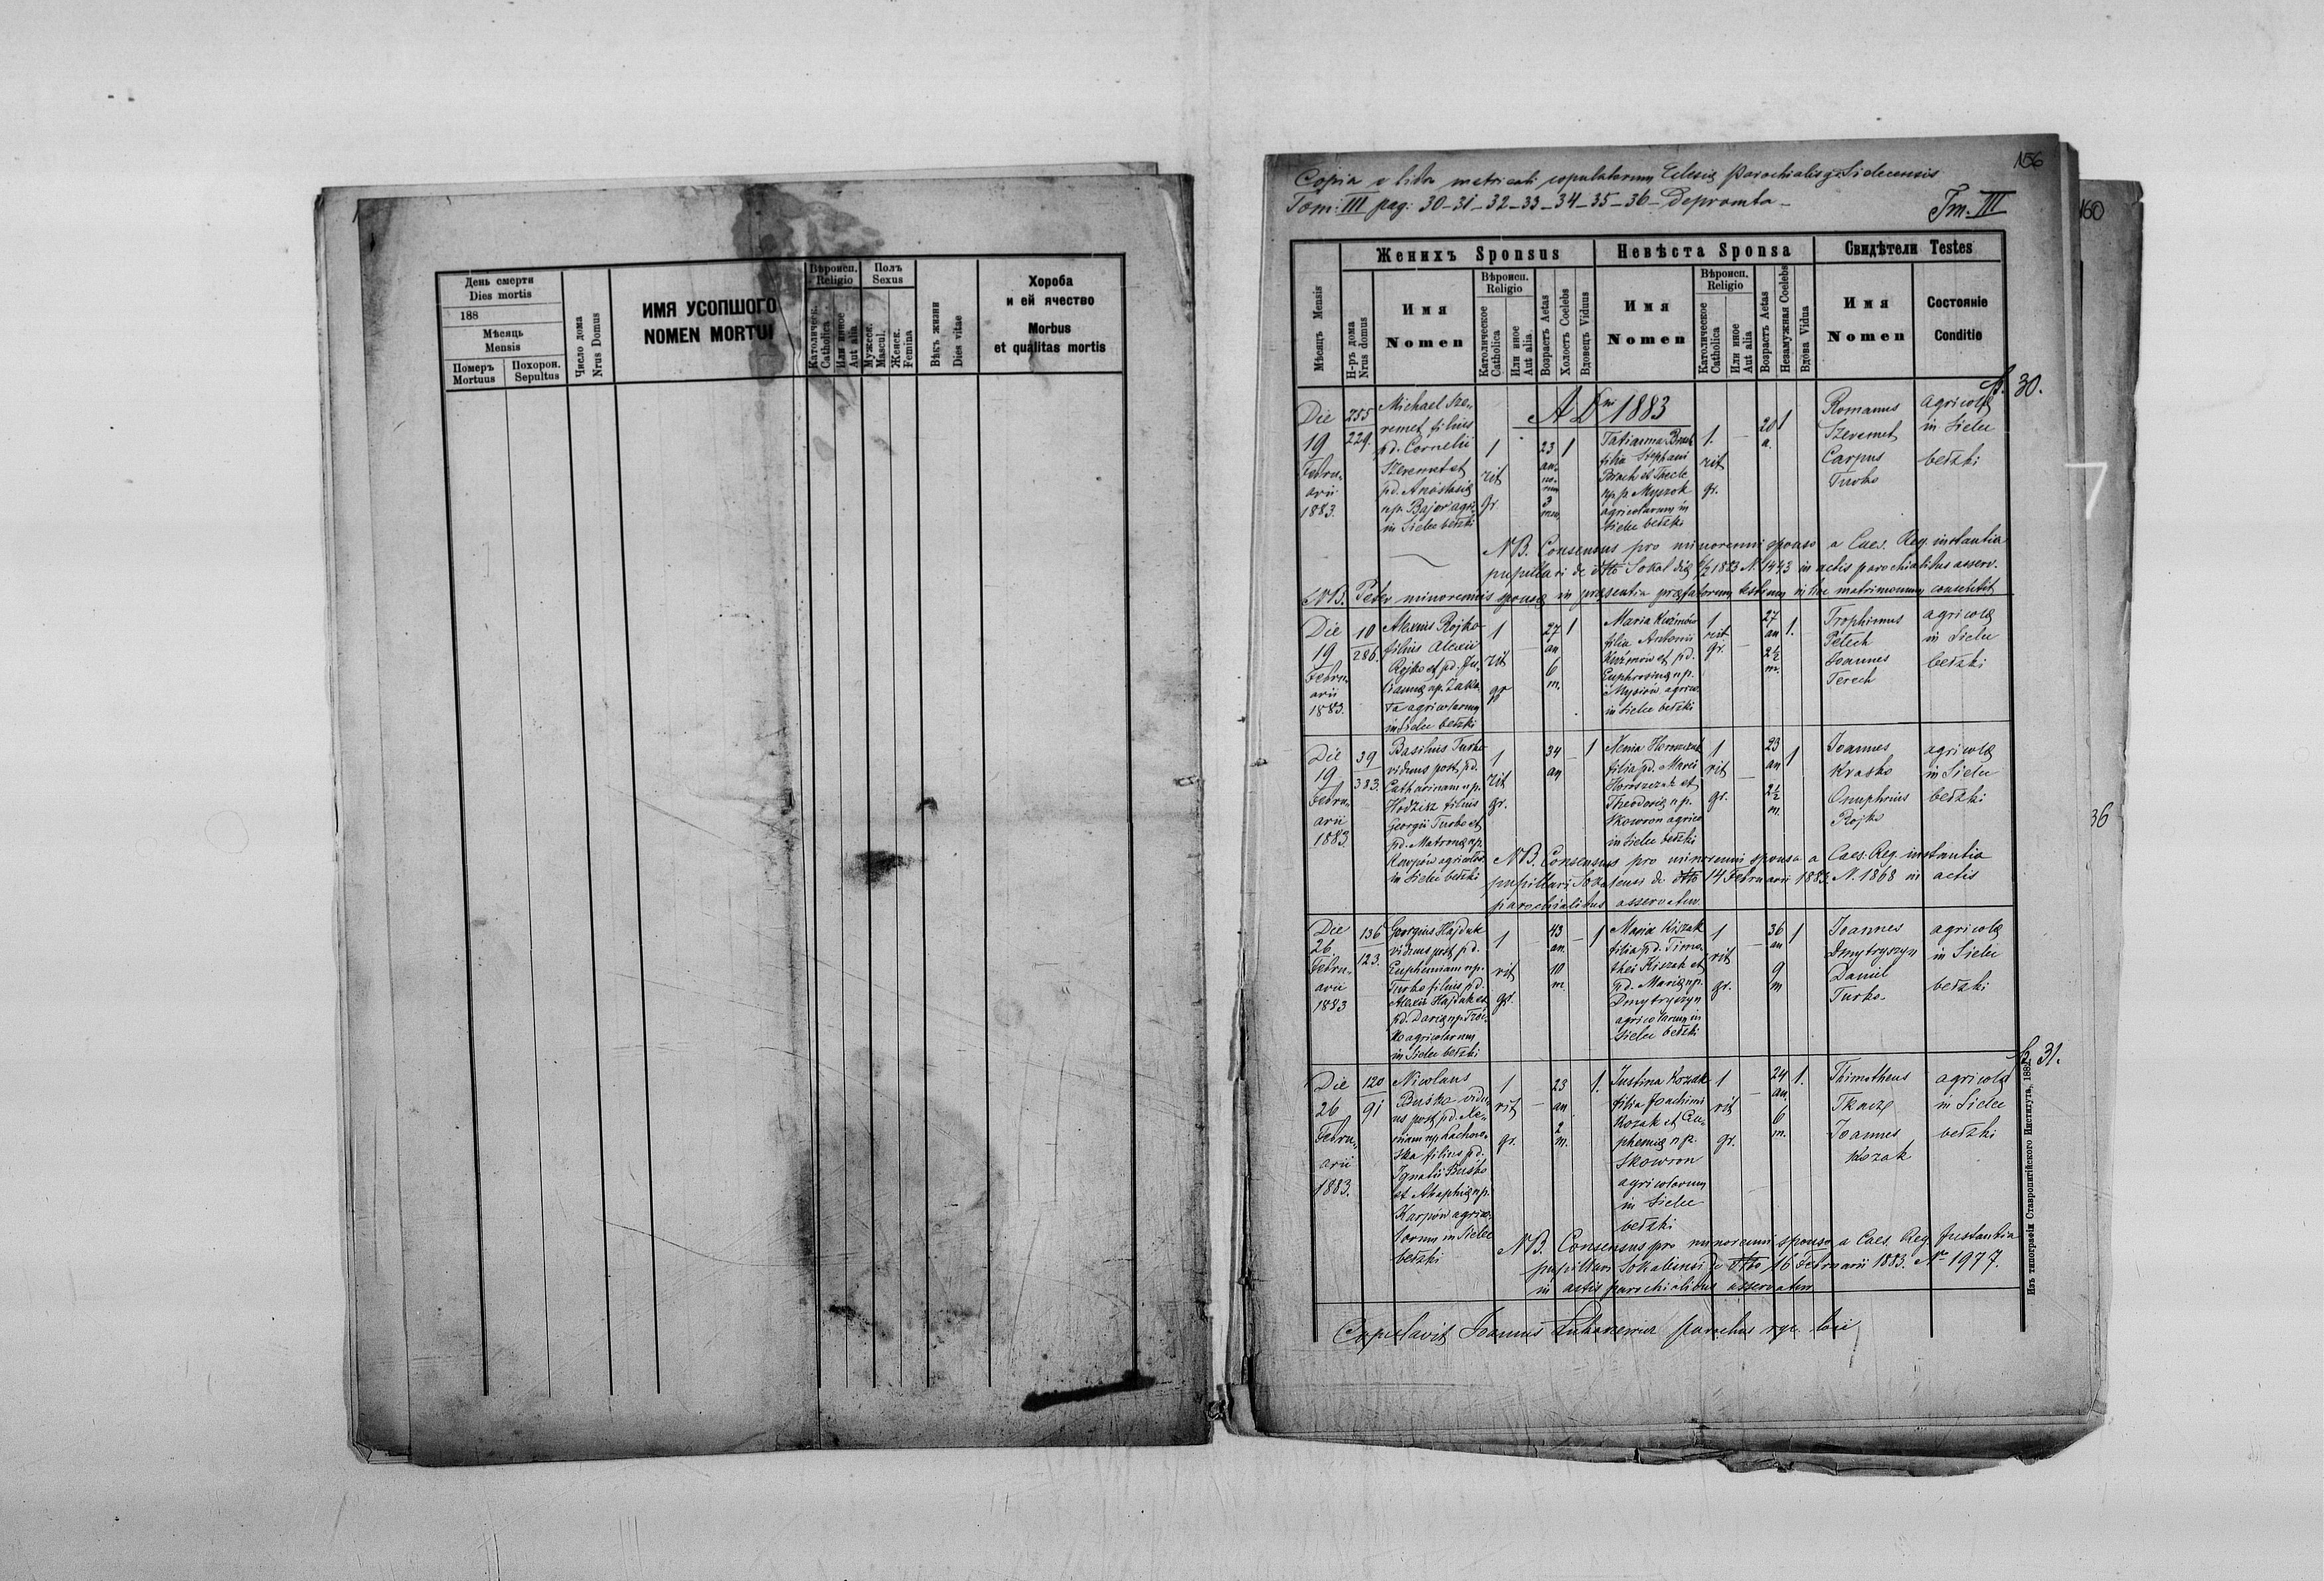 День смерти
Dies mortis
188
Мѣсяць
Mensis
Померъ
Mortuus
Похорон.
Sepultus
Число дома
Nrus Domus
ИМЯ УСОПШОГО
NOMEN MORTUI
Вѣроисп.
Religio
Католическ.
Catholica
Или иное
Aut alia
Полъ
Sexus
Мужеск.
Mascul.
Женск.
Femina
Вѣкъ жизни
Dies vitae
Хороба
и ей ячество
Morbus
et qualitas mortis
156
160
Copia e libro metricali copulatorum Eclesiæ parochialis
Tom: III pag: 30-31-32-33-34-35-36- Depromta-
Tm. III
Женихъ Sponsus
Невѣста Sponsa
Свидѣтели Testes
Мѣсяць Mensis
Н-ръ дома
Nrus domus
Имя
Nomen
Вѣроисп.
Religio
Католическое
Catholica
Или иное
Aut alia
Возрасть Aetas
Холость Coelebs
Вдовець Viduus
Имя
Nomen
Вѣроисп.
Religio
Католическое
Catholica
Или иное
Aut alia
Возрасть Aetas
Незамужная Coelebs
Вдова Vidua
Имя
Nomen
Состояніе
Conditio
p. 30.
A D 1883
Die
19
Febru-
arii
1883.
255
229.
Michael Sze-
remet filius
pd. Cornelii
Szeremet et
pd. Anastasiæ
n.p. Bajor agr.
in Sielec bełzki
1
rit
gr.
23
an-
no-
rum
3
men
1
Tatianna
filia Stephani
et Theclæ
n. p. Myszok
agricolarum in
Sielec bełzki
1.
rit
gr.
20
a.
1
Romanus
Szeremet
Carpus
Turko
agricolæ
in Sielec
bełzki
NB. Consensus pro minorenni sponso a Caes. Reg. instantia
pupillari de dtto Sokal die 1883 N. 1443 in actis parochialibus asserv.
NB. Pater minorennis sponsæ in præsentia præfatorum testium in hoc matrimonium consentit
Die
19
Febru-
arii
1883.
10
286.
Alexius Rojko
filius Alexii
Rojko et pd. Ju-
liannæ n.p. Zakło-
ta agricolarum
in Sielec bełzki
1
rit
gr
27
an
6
m.
1
Maria Kuźmów
filia Antonii
Kuźmów et pd.
Euphrosinæ n.p.
Mysiów agrico.
in Sielec bełzki
1
rit
gr.
27
an
2½
m.
1.
Trophimus
Petech
Joannes
Terech
agricolæ
in Sielec
bełzki
Die
19
Febru-
arii
1883
39
383.
Basilius Turko
viduus post pd.
Catharinam n.p.
Hodzisz filius
Georgii Turko et
pd. Matronæ n.p.
Karpów agricolar.
in Sielec bełzki
1
rit
gr.
34
an
1
Xenia Horoszczak
filia pd. Marci
Horoszczak et
Theodoriæ n.p.
Skowron agrico
in Sielec bełzki
1
rit
gr.
23
an
2½
m.
1
Joannes
Krasko
Onuphrius
Rojko
agricolæ
in Sielec
bełzki
NB. Consensus pro minorenni sponsa a Caes. Reg. instantia
pupillari Sokalensi de dtto 14 Februarii 1883. N. 1868 in actis
parochialibus asservatur.
Die
26
Febru-
arii
1883
136
123.
Georgius Hajduk
viduus post pd.
Euphemiam n.p.
Turko filius pd.
Alexii Hajduk et
pd. Dariæ n.p.
ko agricolarum
in Sielec bełzki
1
rit
gr.
43
an.
10
m.
1
Maria Kiszak
filia pd. Timo-
thei Kiszak et
pd. Mariæ n.p.
Dmytryszyn
agricolarum in
Sielec bełzki
1
rit
gr.
36
an
9
m
1
Joannes
Dmytryszyn
Daniel
Turko.
agricolæ
in Sielec
bełzki
p. 31.
Die
26
Febru-
arii
1883.
120
91
Nicolaus
Buśko vidu-
us post pd. Xe-
niam n.p. Lachow-
ska filius pd.
Ignatii Buśko
et Ahaphiæ n.p.
Karpów agrico-
larum in Sielec
bełzki
1
rit
gr.
23
an.
2
m.
1.
Justina Kozak
filia Joachimi
Kozak et Eu-
phemiæ n.p.
Skowron
agricolarum
in Sielec
bełzki
1
rit
gr.
24
an.
6
m.
1.
Thimotheus
Tkacz
Joannes
Kozak
agricolæ
in Sielec
bełzki
NB. Consensus pro minorenni sponso a Caes. Reg. Instantia
pupillari Sokalensi de dtto 16 Februarii 1883. Nro 1977.
in actis parochialibus asservatur
Copulavit Joannes parochus
Изъ типографіи Ставропигійского Института, 188
36